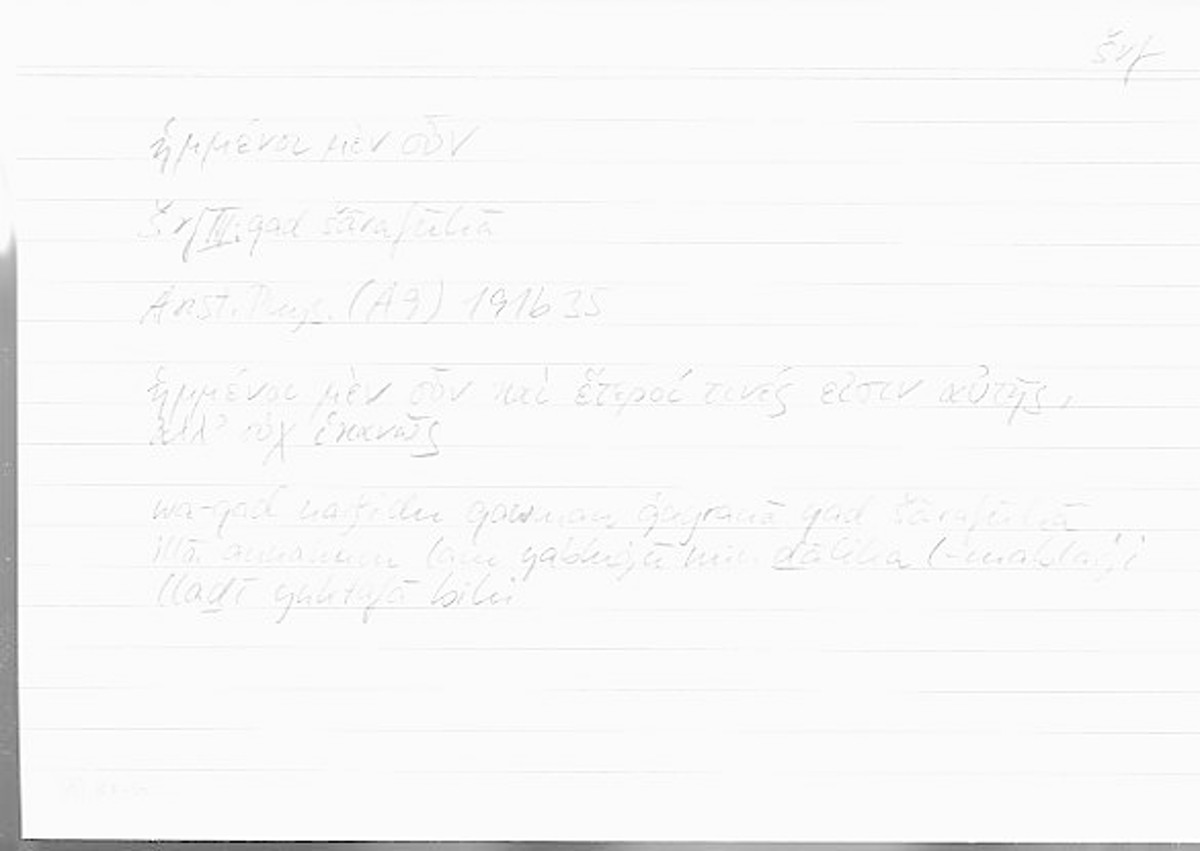 šrf
ἡμμένοι μὲν οὖν
šrf III: qad šārafūhā
Arist. Phys. (A 9) 191b 35
ἡμμένοι μὲν οὖν καὶ ἕτεροί τινές εἰσιν αὐτῆς,
ἀλλ' οὐχ ἱκανῶς
wa-qad naǧidu qawman ġayranā qad šārafūhā
illā annahum lam yabluġū min ḏālika l-mablaġi
llaḏī yuktafā bihi